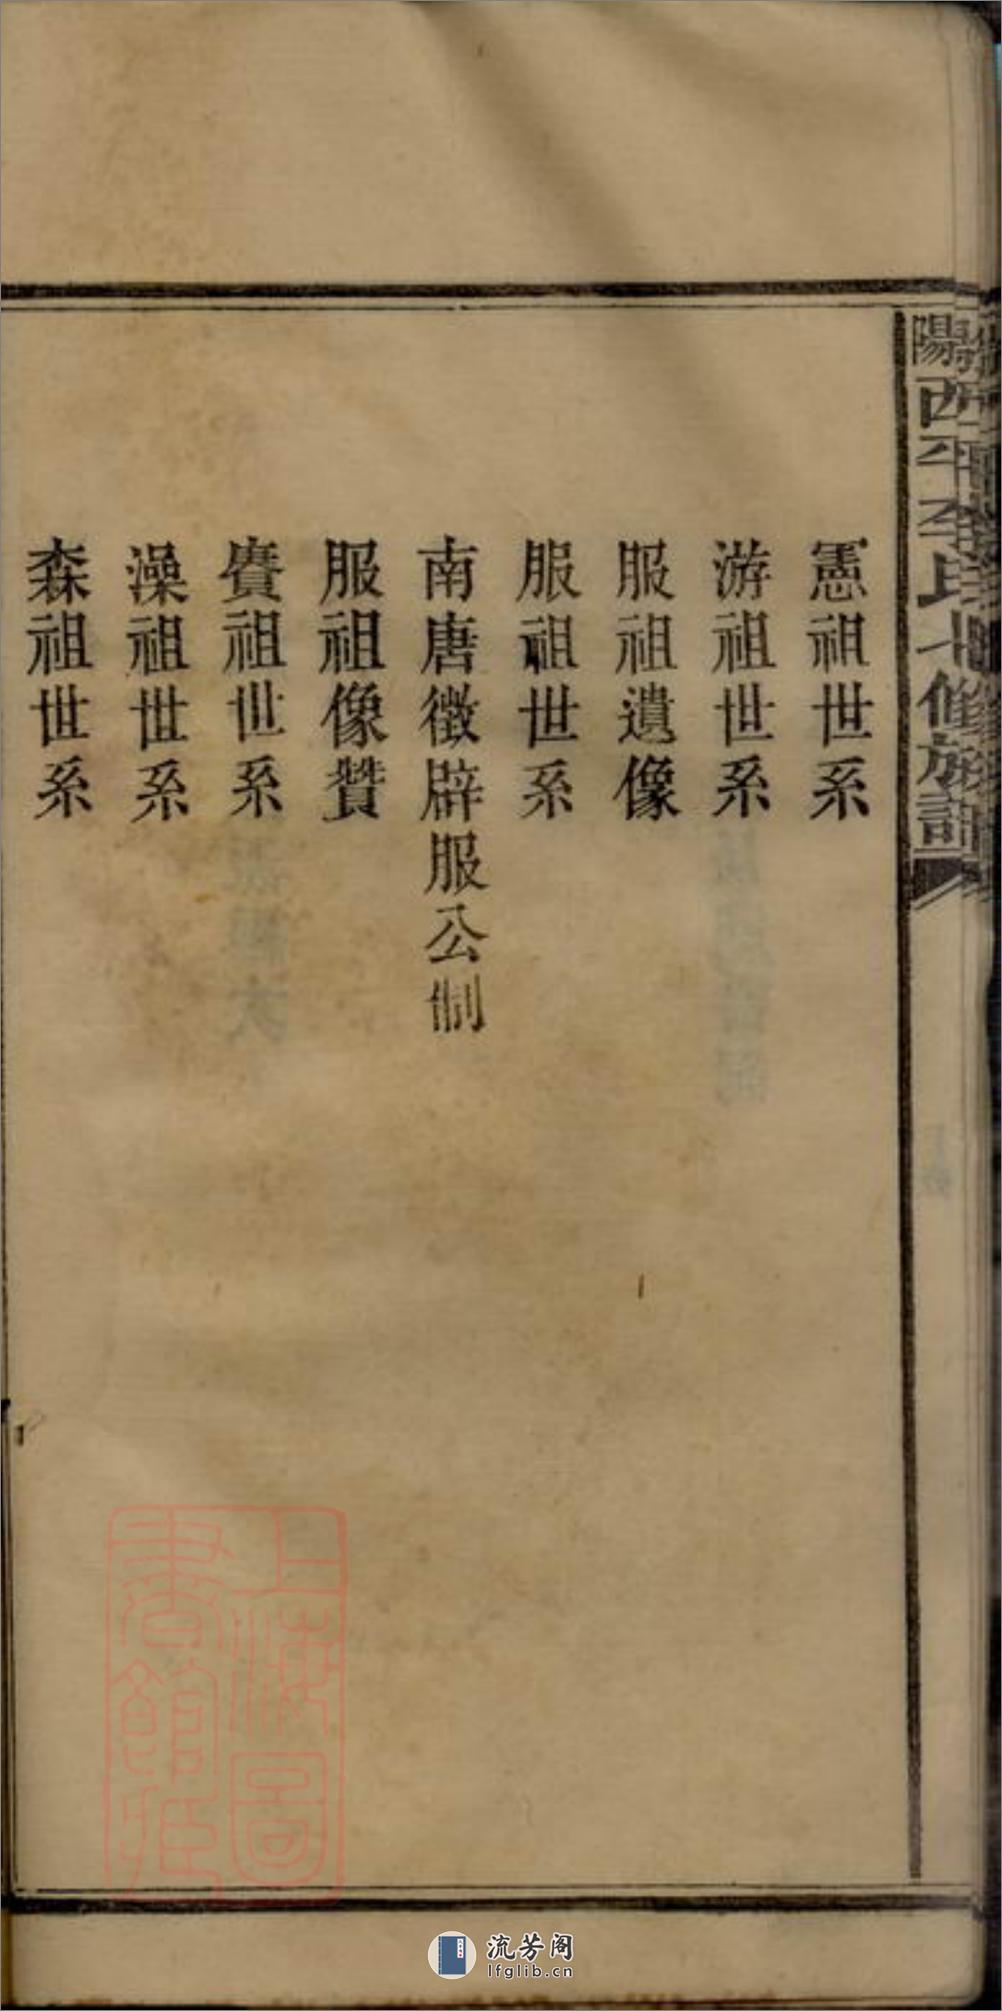 陽西平李氏七修族譜
憲祖世系
游祖世系
服祖遺像
服祖世系
南唐徵辟服公制
服祖像贊
賡祖世系
澡祖世系
森祖世系
上海圖
書館臧
流芳阁
lfglib.cn